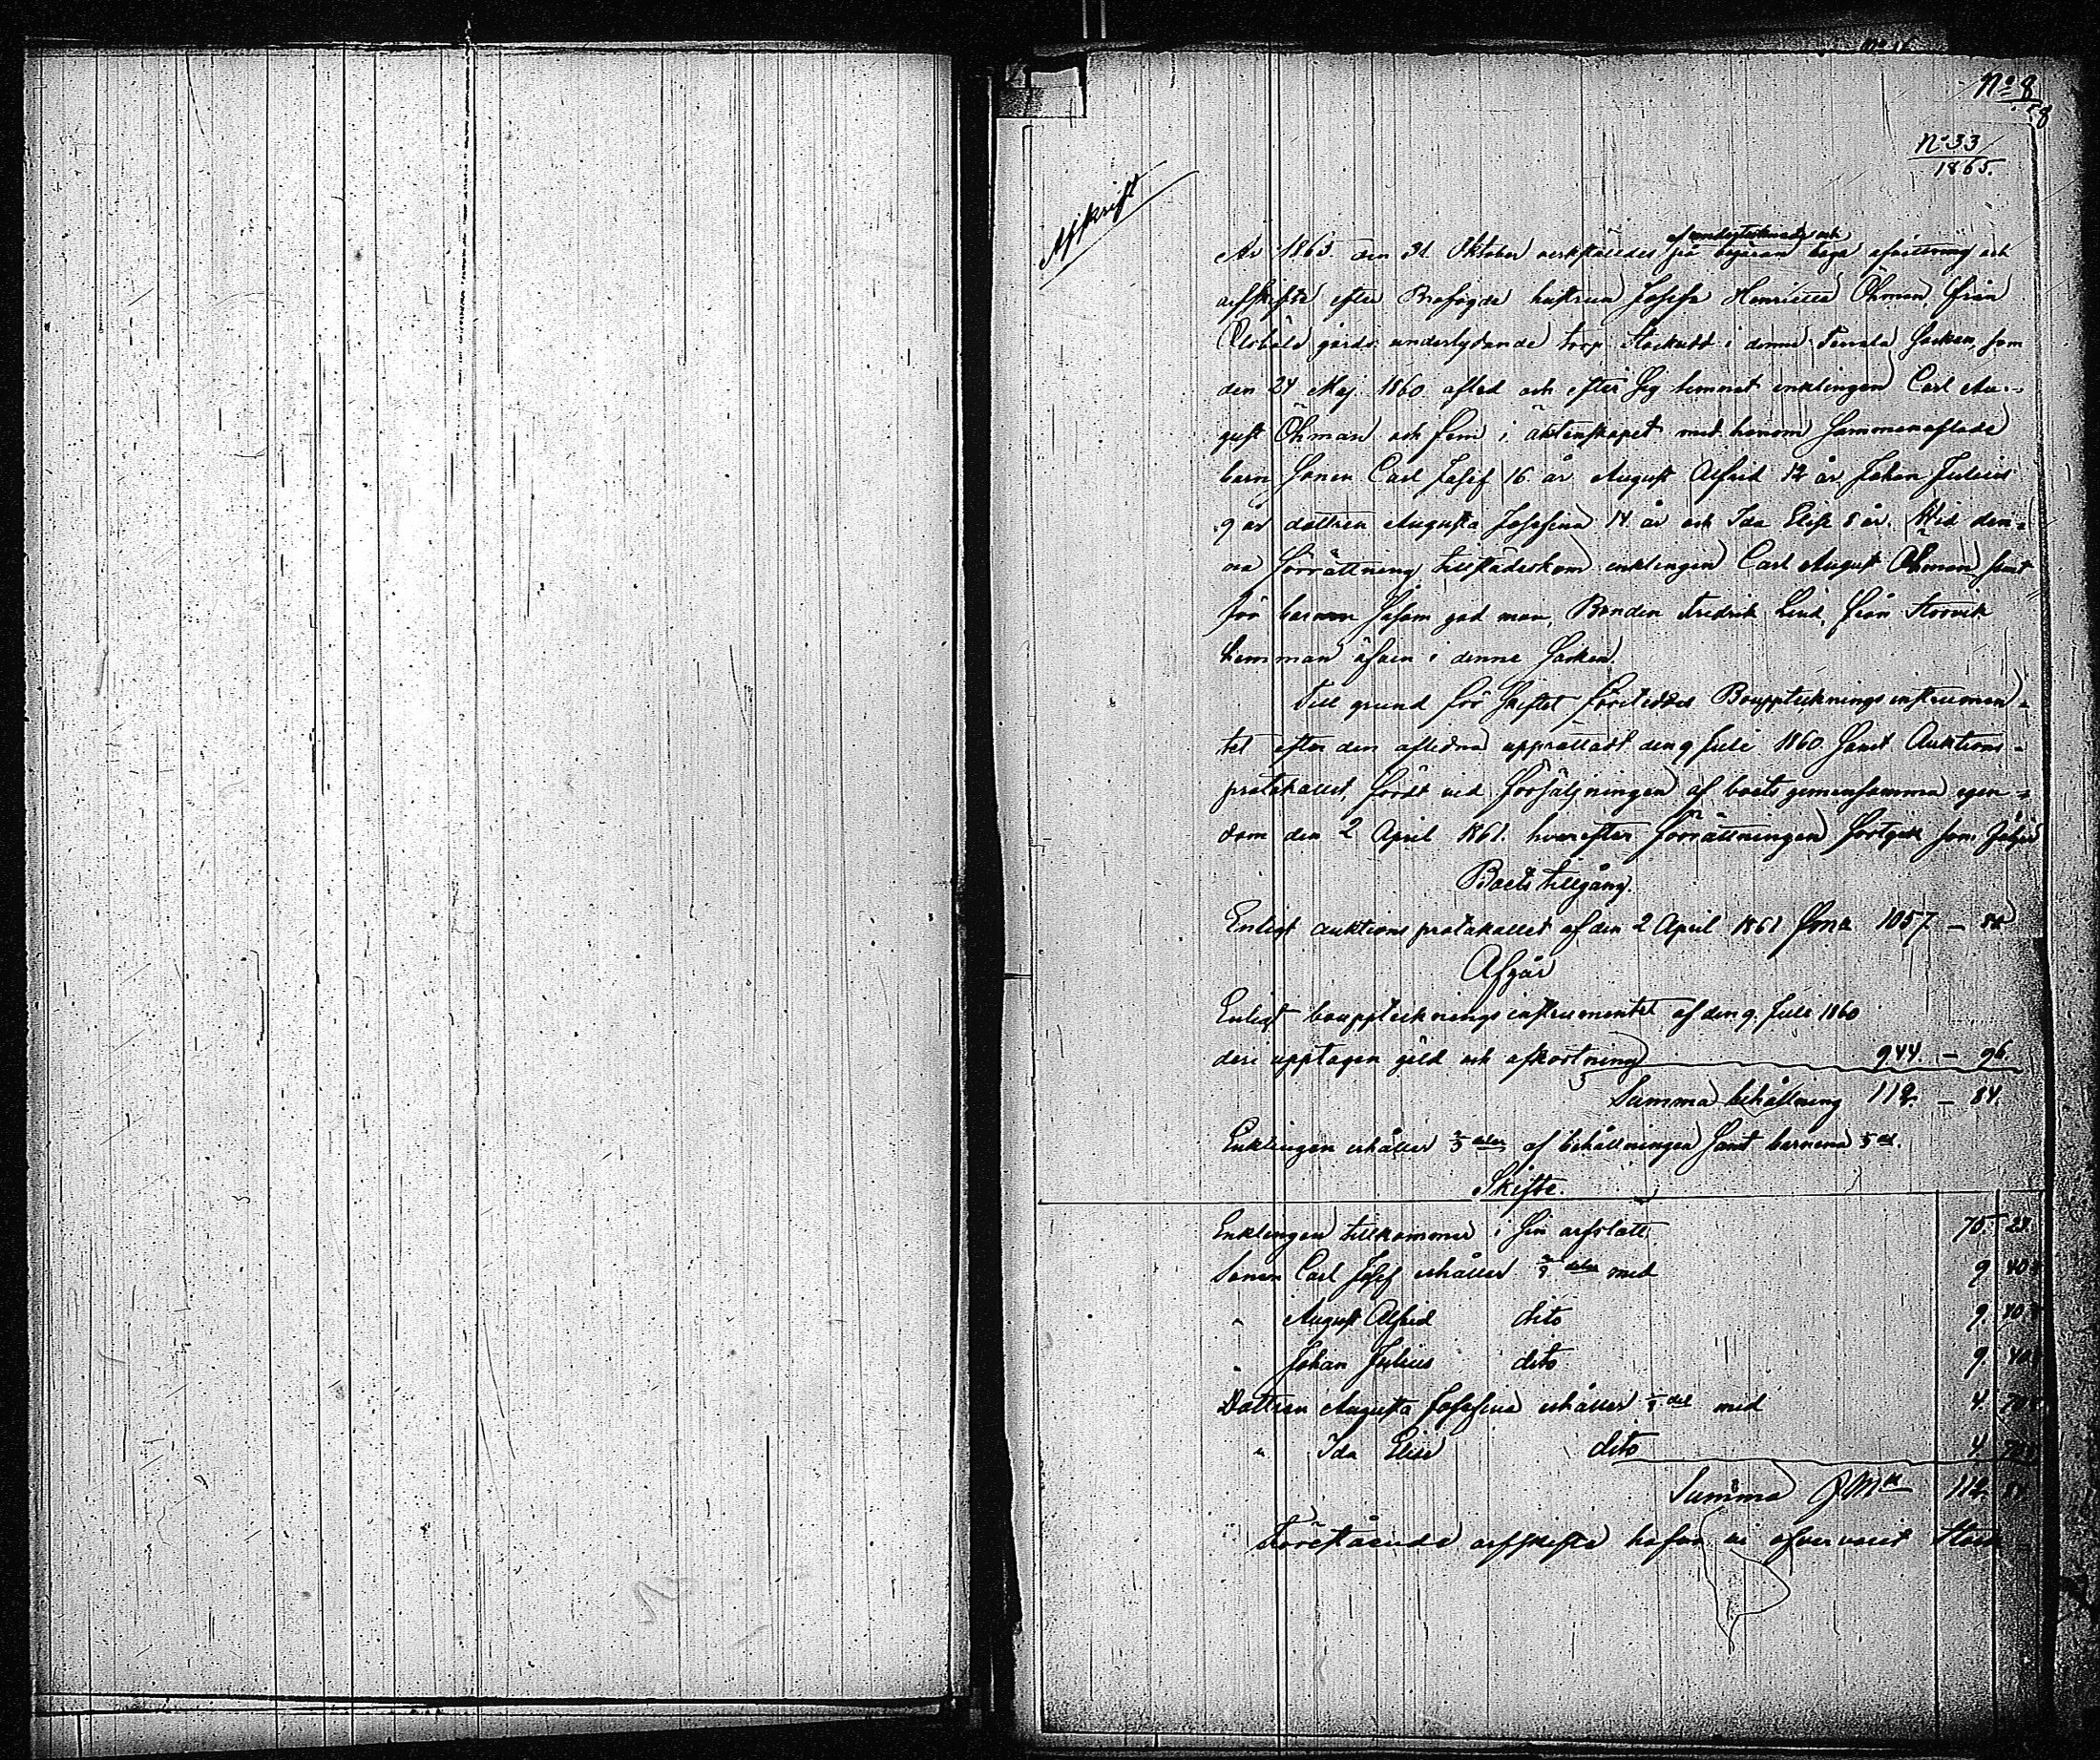 No 8
8
No 33
1865.
Afskrift
af undertecknade och
År 1863 den 31 Oktober verkställdes på begäran laga afvittring och
arfskifte efter hustrun Josefa Henrietta Öhman från
gårds underlydande torp i denna Tenala Socken, som
den 24 Maj 1860 afled och efter sig lemnat enklingen Carl Au-
gust Öhman och fem i äktenskapet med honom sammanaflade
barn Sonen Carl Josef 16 år August Alfred 12 år Johan Julius
9 år dottren Augusta Josefina 14 år och Ida Elise 5 år. Wid den-
na förrättning tillstädeskom enklingen Carl August Öhman samt
för barnen såsom god man, Bonden Fredrik Lind, från Storvik
hemman äfven i denna Socken.
Till grund för skiftet företeddes Bouppteckningsinstrumen-
tet efter den aflidna upprättadt den 9 Juli 1860 samt Auktions-
protokollet, fördt vid försäljningen af boets gemensamma egen-
dom den 2 April 1861. hvarefter förrättningen fortgick som följer
Boets tillgång.
Enligt auktions protokollet af den 2 April 1861 Fmk 1057 -
Afgår
Enligt bouppteckningsinstrumentet af den 9 Juli 1860
deri upptagen gäld och afkortning 944. - 96
Summa behållning 112. - 84.
Enklingen erhåller af behållningen samt barnena
Skifte.
Enklingen tillkommer i sin arfslott
Sonen Carl Josef erhåller 2/8 delar med 9 40
" August Alfred dito 9. 40
" Johan Julius dito 9. 40
Dottren Augusta Josefina erhåller 1/8 del med 4. 70
" Ida Elise dito 4. 70
Summa FMk 112.
Förestående arfskifte hafva vi öfvervarit